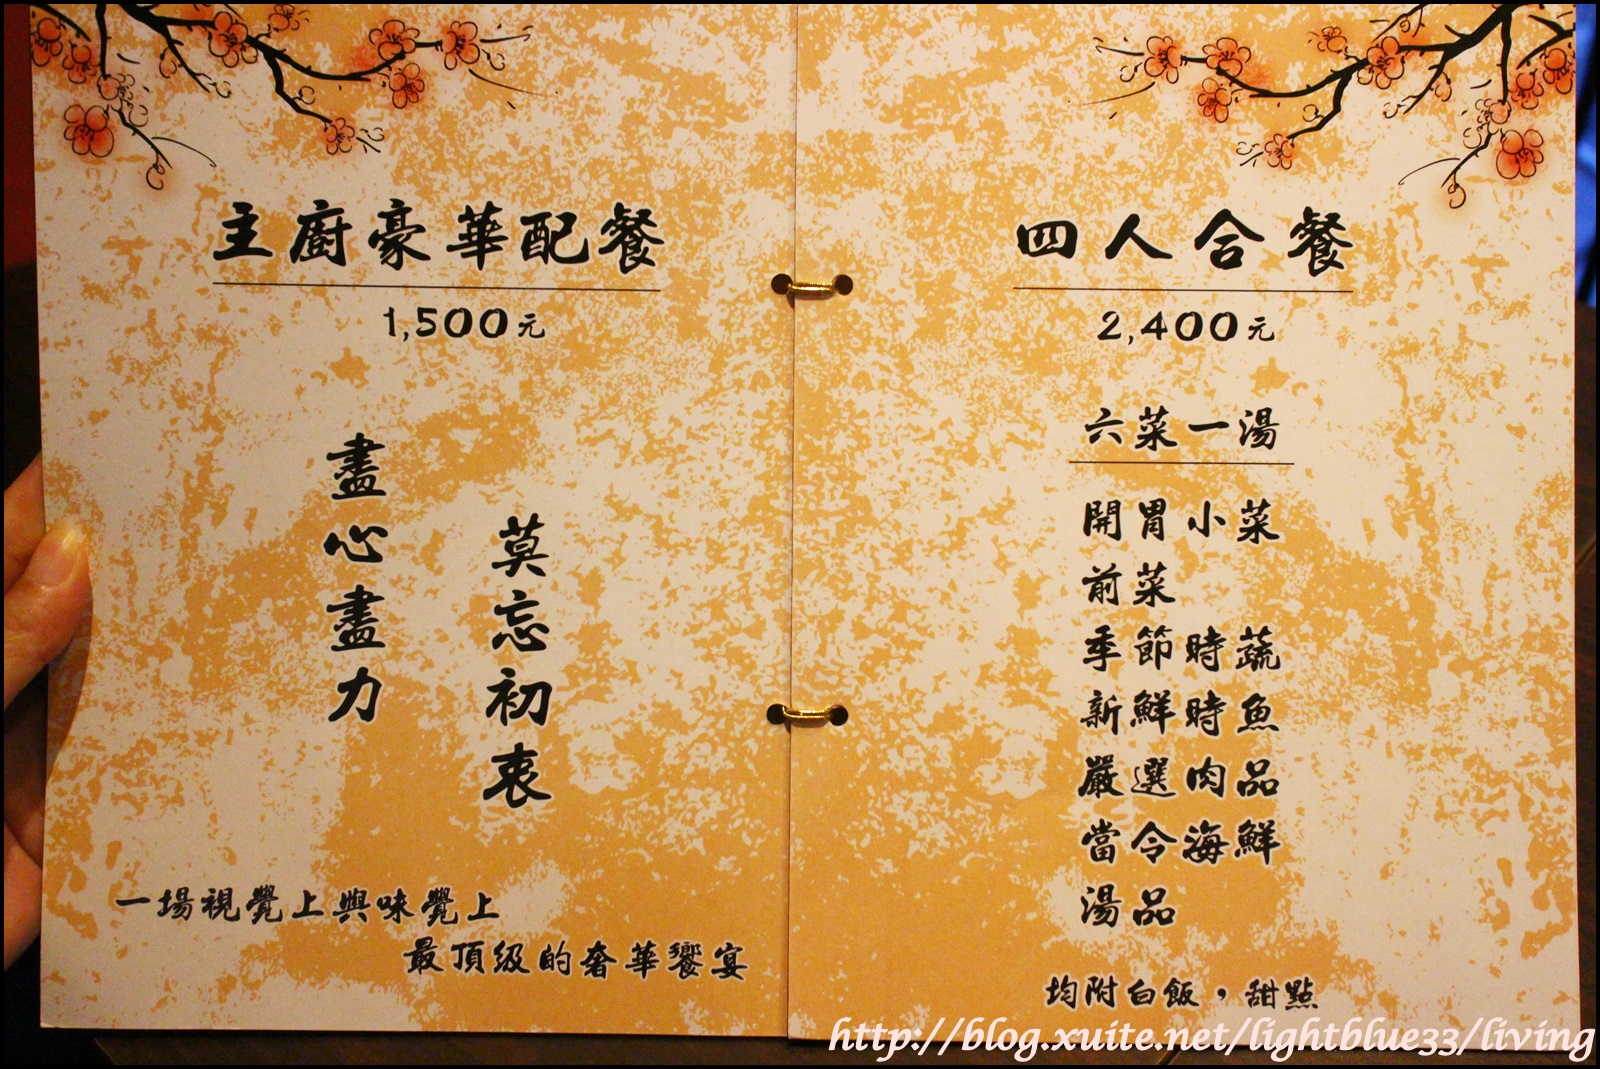 主廚豪華配餐
1,500元
莫忘初衷
盡心盡力
一場視覺上與味覺上
最頂級的奢華饗宴
四人合餐
2,400元
六菜一湯
開胃小菜
前菜
季節時蔬
新鮮時魚
嚴選肉品
當令海鮮
湯品
均附白飯，甜點
http://blog.xuite.net/lightblue33/living